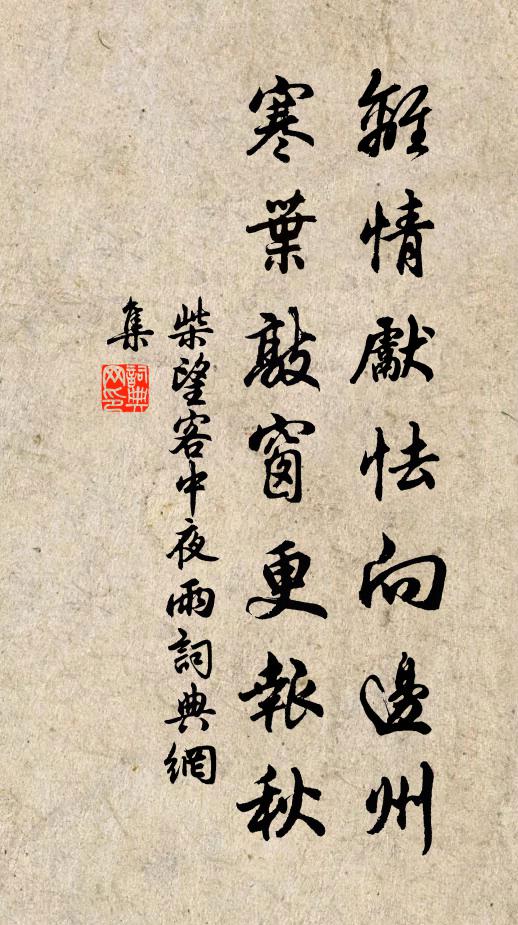 離情獻怯向邊州
寒葉敲窗更報秋
柴望客中夜雨詞典網
集
詞典
网印